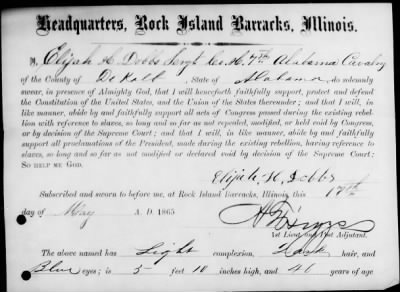 Headquarters, Rock Island Barracks, Illinois.
I, Elijah H. Dobbs Sergt Co. H. 7th Alabama Cavalry
of the County of DeKalb, State of Alabama, do solemnly
swear, in presence of Almighty God, that I will henceforth faithfully support, protect and defend
the Constitution of the United States, and the Union of the States thereunder; and that I will, in
like manner, abide by and faithfully support all acts of Congress passed during the existing rebellion
with reference to slaves, so long and so far as not repealed, modified, or held void by Congress,
or by decision of the Supreme Court; and that I will, in like manner, abide by and faithfully
support all proclamations of the President, made during the existing rebellion, having reference to
slaves, so long and so far as not modified or declared void by decision of the Supreme Court:
SO HELP ME GOD.
Elijah H. Dobbs
Subscribed and sworn to before me, at Rock Island Barracks, Illinois, this 17th
day of May A. D. 1865
1st Lieut and Post Adjutant.
The above named has Light complexion, Dark hair, and
Blue eyes; is 5 feet 10 inches high, and 40 years of age